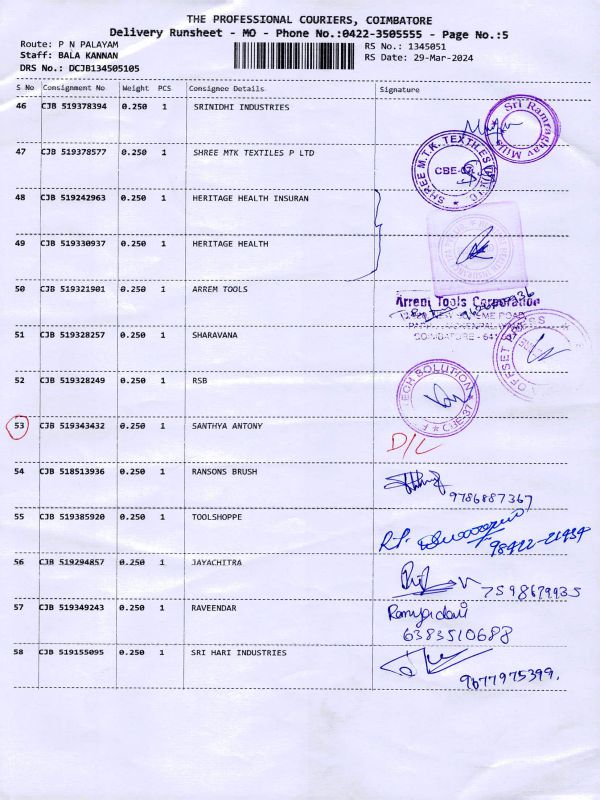 THE PROFESSIONAL COURIERS, COIMBATORE
Delivery Runsheet - MO - Phone No.:0422-3505555 - Page No.:5
Route: P N PALAYAM
Staff: BALA KANNAN
DRS No.: DCJB134505105
RS No.: 1345051
RS Date: 29-Mar-2024
S No Consignment No Weight PCS Consignee Details Signature
46 CJB 519378394 0.250 1 SRINIDHI INDUSTRIES
Sri Ramraghav Mills
47 CJB 519378577 0.250 1 SHREE MTK TEXTILES P LTD
SHREE M.T.K. TEXTILES
CBE-37
48 CJB 519242963 0.250 1 HERITAGE HEALTH INSURAN
49 CJB 519330937 0.250 1 HERITAGE HEALTH
50 CJB 519321901 0.250 1 ARREM TOOLS
Arrem Tools Corporation
COIMBATORE - 641
51 CJB 519328257 0.250 1 SHARAVANA
OFFSET
52 CJB 519328249 0.250 1 RSB
TECH SOLUTION
CBE-37
53 CJB 519343432 0.250 1 SANTHYA ANTONY
D/L
54 CJB 518513936 0.250 1 RANSONS BRUSH
9786887367
55 CJB 519385920 0.250 1 TOOLSHOPPE
98422-21434
56 CJB 519294857 0.250 1 JAYACHITRA
7598679935
57 CJB 519349243 0.250 1 RAVEENDAR
Ramya devi
6383510688
58 CJB 519155095 0.250 1 SRI HARI INDUSTRIES
9677975399.